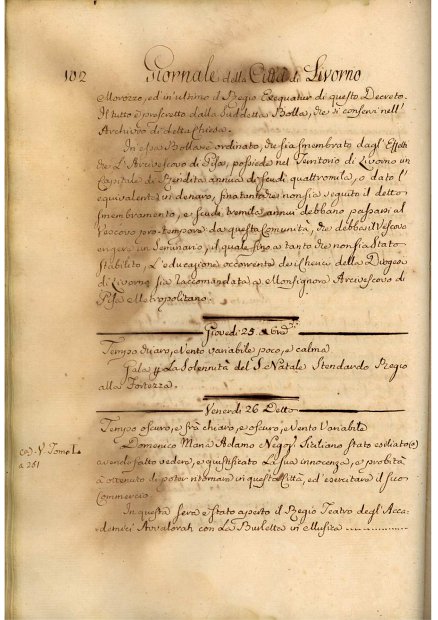 102 Giornale della Città di Livorno
Morozzo, ed in ultimo il Regio Exequatur di questo Decreto.
Il tutto è proscretto dalla suddetta Bolla, che si conserva nell'
Archivio di detta Chiesa.
In essa Bolla è ordinato, che sia smembrato dagl' Effetti
che L'Arcivescovo di Pisa, possiede nel Territorio di Livorno un
Capitale di Rendita annua di scudi quattromila, o dato l'
equivalente in denaro, fina tanto che non sia seguito il detto
smembramento, e scudi tremila annui debbano passarsi al
Vescovo pro-tempore da questa Comunità, che debba il Vescovo
erigere un Seminario, il quale fino a tanto che non sia stato
stabilito, L'educazione occorrente dei Cherici della Diogesi
di Livorno sia raccomandata a Monsignore Arcivescovo di
Pisa e Metropolitano.
Giovedì 25 Xbre
Tempo chiaro, e Vento variabile poco, e calma
Gala p La Solennità del S. Natale Stendardo Regio
alla Fortezza.
Venerdì 26 Detto
Tempo oscuro, e srà chiaro, e oscuro, e Vento Variabile
Domenico Maria Adamo Siciliano stato esiliato (a)
avendo fatto vedere, e giustificato La sua innocenza, e probità
à ottenuto di poter ritornare in questa Città, ed esercitare il suo
Commercio
(a) V. Tomo I.
a 261
In questa sera è stato aperto il Regio Teatro degl' Acca-
demici Avvalorati con La Burletta in Musica